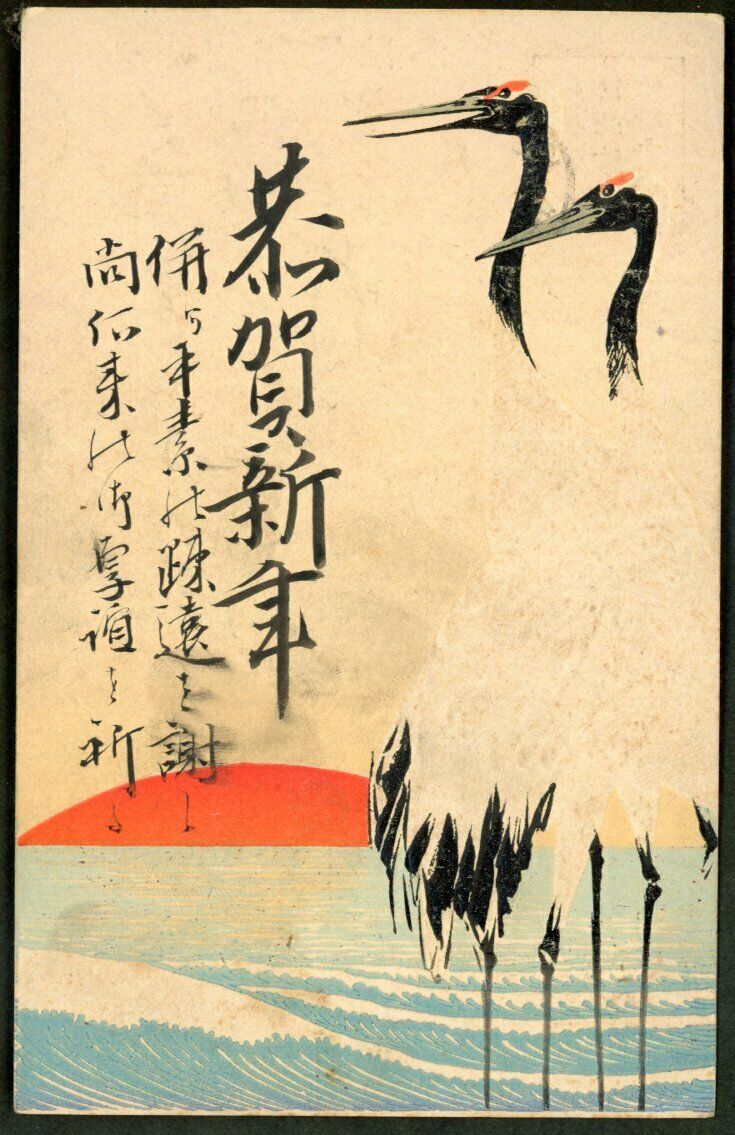 恭賀新年
併而平素の疎遠を謝し
尚将来の御厚誼を祈る